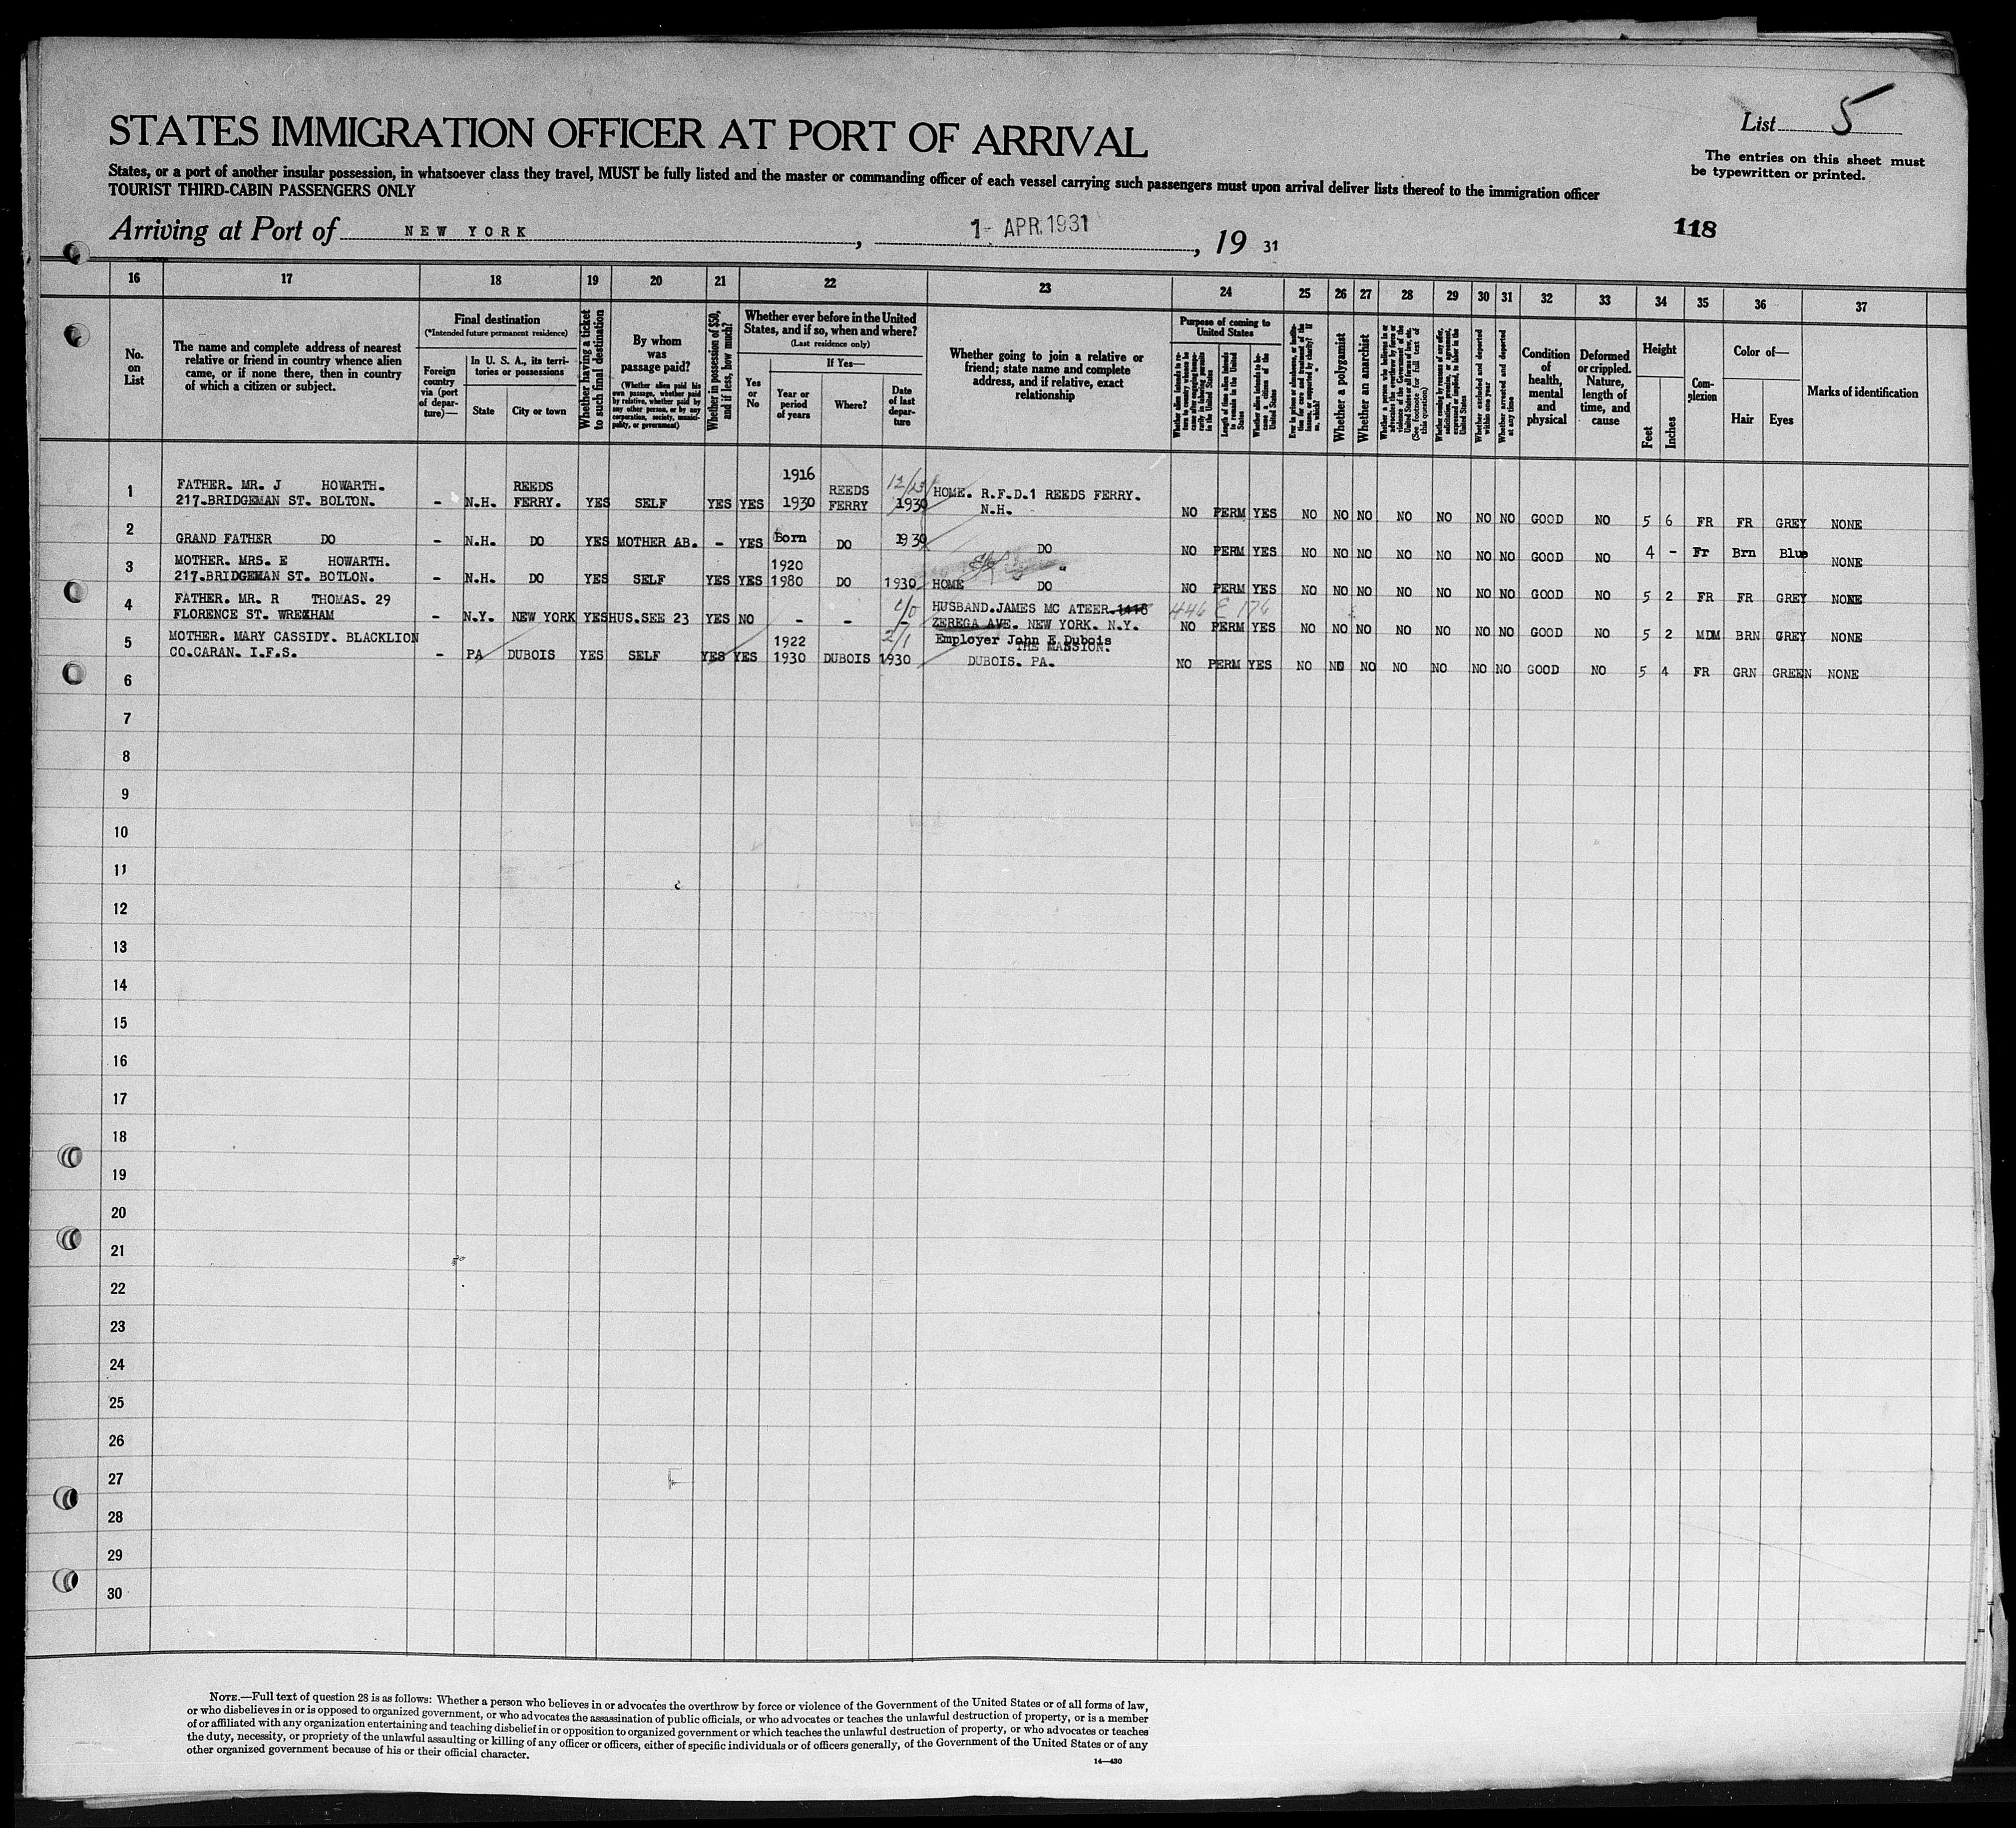 List 5
STATES IMMIGRATION OFFICER AT PORT OF ARRIVAL
The entries on this sheet must
be typewritten or printed.
States, or a port of another insular possession, in whatsoever class they travel, MUST be fully listed and the master or commanding officer of each vessel carrying such passengers must upon arrival deliver lists thereof to the immigration officer
TOURIST THIRD-CABIN PASSENGERS ONLY
Arriving at Port of NEW YORK, 1- APR. 1931, 19 31
118
16 17 18 19 20 21 22 23 24 25 26 27 28 29 30 31 32 33 34 35 36 37
No.
on
List
The name and complete address of nearest
relative or friend in country whence alien
came, or if none there, then in country
of which a citizen or subject.
Final destination
(*Intended future permanent residence)
Foreign
country
via (port
of depar-
ture)—
In U. S. A., its terri-
tories or possessions
State
City or town
Whether having a ticket
to such final destination
By whom
was
passage paid?
(Whether alien paid his
own passage, whether paid
by relative, whether paid by
any other person, or by any
corporation, society, munici-
pality, or government)
Whether in possession of $50,
and if less, how much?
Whether ever before in the United
States, and if so, when and where?
(Last residence only)
Yes
or
No
If Yes—
Year or
period
of years
Where?
Date
of last
depar-
ture
Whether going to join a relative or
friend; state name and complete
address, and if relative, exact
relationship
Purpose of coming to
United States
Length of time alien intends
to remain in the United
States
Whether alien intends to be-
come a citizen of the
United States
Whether a polygamist
Whether an anarchist
(See footnote for full text of
this question)
Whether excluded and deported
within one year
Whether arrested and deported
at any time
Condition
of
health,
mental
and
physical
Deformed
or crippled.
Nature,
length of
time, and
cause
Height
Feet
Inches
Com-
plexion
Color of—
Hair
Eyes
Marks of identification
1916
1 FATHER. MR. J HOWARTH. REEDS REEDS 12/23 HOME. R.F.D.1 REEDS FERRY.
217.BRIDGEMAN ST. BOLTON. - N.H. FERRY. YES SELF YES YES 1930 FERRY 1930 N.H. NO PERM YES NO NO NO NO NO NO NO GOOD NO 5 6 FR FR GREY NONE
2 GRAND FATHER DO - N.H. DO YES MOTHER AB. - YES Born DO 1930 DO NO PERM YES NO NO NO NO NO NO NO GOOD NO 4 - Fr Brn Blue NONE
3 MOTHER. MRS. E HOWARTH. 1920 "
217.BRIDGEMAN ST. BOTLON. - N.H. DO YES SELF YES YES 1980 DO 1930 HOME DO NO PERM YES NO NO NO NO NO NO NO GOOD NO 5 2 FR FR GREY NONE
4 FATHER. MR. R THOMAS. 29 HUSBAND.JAMES MC ATEER.1416 446 E 176
FLORENCE ST. WREXHAM - N.Y. NEW YORK YES HUS.SEE 23 YES NO - - - ZEREGA AVE. NEW YORK. N.Y. NO PERM YES NO NO NO NO NO NO NO GOOD NO 5 2 MDM BRN GREY NONE
5 MOTHER. MARY CASSIDY. BLACKLION 1922 2/1 Employer John E Dubois
THE MANSION.
CO.CARAN. I.F.S. - PA DUBOIS YES SELF YES YES 1930 DUBOIS 1930 DUBOIS. PA. NO PERM YES NO NO NO NO NO NO NO GOOD NO 5 4 FR GRN GREEN NONE
6
7
8
9
10
11
12
13
14
15
16
17
18
19
20
21
22
23
24
25
26
27
28
29
30
NOTE.—Full text of question 28 is as follows: Whether a person who believes in or advocates the overthrow by force or violence of the Government of the United States or of all forms of law,
or who disbelieves in or is opposed to organized government, or who advocates the assassination of public officials, or who advocates or teaches the unlawful destruction of property, or is a member
of or affiliated with any organization entertaining and teaching disbelief in or opposition to organized government or which teaches the unlawful destruction of property, or who advocates or teaches
the duty, necessity, or propriety of the unlawful assaulting or killing of any officer or officers, either of specific individuals or of officers generally, of the Government of the United States or of any
other organized government because of his or their official character.
14—430